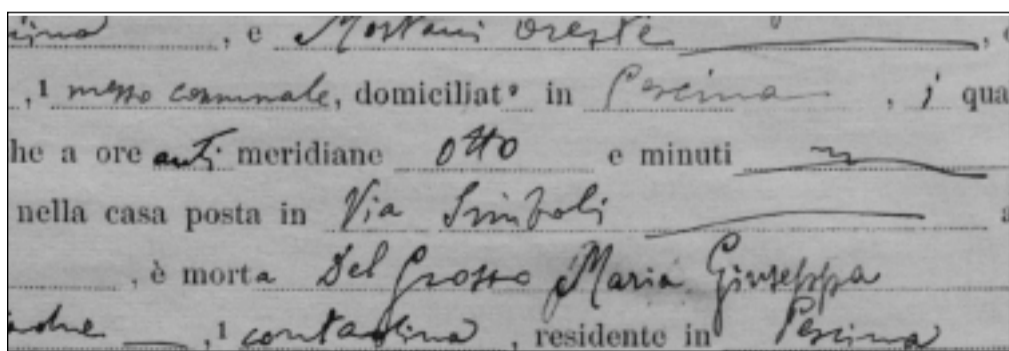 , e Mostani Oreste , 
, ¹ messo comunale, domiciliato in Pescina , i qua
he a ore anti meridiane otto e minuti
nella casa posta in Via a
, è morta Del Grosso Maria Giuseppa
, ¹ contadina , residente in Pescina